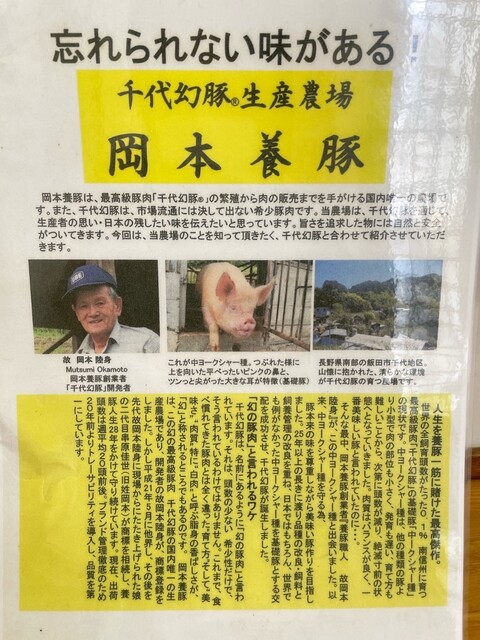 忘れられない味がある
千代幻豚®生産農場
岡本養豚
岡本養豚は、最高級豚肉「千代幻豚®」の繁殖から肉の販売までを手がける国内唯一の農場で
す。また、千代幻豚は、市場流通には決して出ない希少豚肉です。当農場は、千代幻豚を通じて、
生産者の思い・日本の残したい味を伝えたいと思っています。旨さを追求した物には自然と安全
がついてきます。今回は、当農場のことを知って頂きたく、千代幻豚と合わせて紹介させていただ
きます。
故 岡本 陸身
Mutsumi Okamoto
岡本養豚創業者
「千代幻豚」開発者
これが中ヨークシャー種。つぶれた様に
上を向いた平べったいピンクの鼻と、
ツンっと尖がった大きな耳が特徴(基礎豚)
長野県南部の飯田市千代地区。
山懐に抱かれた、清らかな環境
が千代幻豚の育つ現場です。
人生を養豚一筋に賭けた最高傑作。
世界の全飼育頭数がたったの1%　南信州に育つ
最高級豚肉「千代幻豚」の基礎豚、中ヨークシャー種
の現状です。中ヨークシャー種は、他の種類の豚よ
り小型で肉の部位も小さく、発育も遅い。育て方も
難しいことから、次第に頭数が減り、絶滅寸前の状
態へとなっていきました。しかし肉バランスが良く、一
番美味しい豚と言われていたのに・・・。
そんな最中、岡本養豚創業者『養豚職人　故岡本
陸身』が、この中ヨークシャー種と出会いました。以
陸身が、中ヨークシャー種を守る
豚本来の味を尊重しながら美味い豚作りを目指し
ました。25年以上の長きに渡り品種の改良・飼料と
飼養管理の改良を重ね、日本ではもちろん、世界で
も例がなかった中ヨークシャー種を基礎とする交
配を成功させ、千代幻豚が誕生しました。
「幻の豚肉」と言われるワケ
千代幻豚は、名前にあるように「幻の豚肉」と言わ
れています。それは、頭数の少ない、希少性だけで、
そう言われているわけではありません。これまで、食
べ慣れてきた豚肉とは全く違った『育て方』そして『美
味さ』。肉質、特に「白肉」と呼ぶ脂身の香ばしさが、
「幻」と称されるところでもあるのです。　岡本養豚
は、この幻の最高級豚肉　千代幻豚の国内唯一の生
産農場であり、開発者の故岡本陸身が、商標登録を
しました。しかし平成21年5月に他界し、その後を
先代故岡本陸身に現場からにたたき上げられた娘
の二代目串原佳世(旧姓岡本)が商標を相続し、養
豚人生28年をかけて守り続けています。現在、出荷
頭数は週平均20頭前後。ブランド管理徹底のため
20年前よりトレーサビリティを導入し、品質を第
一にしています。